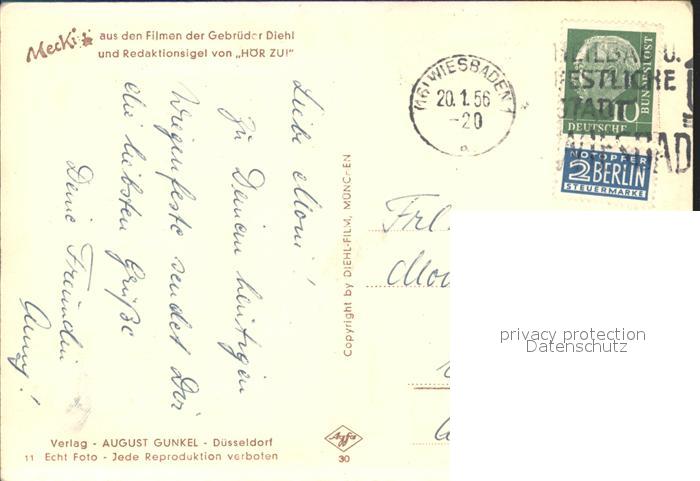 Mecki aus den Filmen der Gebrüder Diehl
und Redaktionsigel von „HÖR ZU!"
Liebe Moni!
Zu Deinem heutigen
Wiegenfeste sendet Dir
die liebsten Grüße
Deine Freundin
Anny!
Copyright by DIEHL-FILM, MÜNCHEN
(16) WIESBADEN 1
20.1.56
-20
HEILBAD U.
FESTLICHE
STADT
WIESBADEN
10
BUNDESPOST
DEUTSCHE
NOTOPFER
2 BERLIN
STEUERMARKE
Frl.
privacy protection
Datenschutz
Verlag - AUGUST GUNKEL - Düsseldorf
11 Echt Foto - Jede Reproduktion verboten
Agfa
30